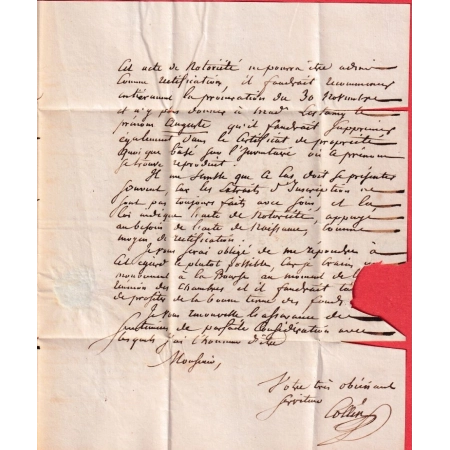 Cet acte de Notoriété ne pourra être admis
comme rectificatives il faudrait recommencer
entièrement la procuration du 30 Novembre
et n'y pas donner à Mad. le
prénom Auguste qu'il faudrait supprimer
également dans le Certificat de propriété
quoique basé sur l'Inventaire où le prénom
se trouve reproduit.
Il me semble que le cas doit se présenter
souvent car les Extraits d'Inscription ne
sont pas toujours faits avec soin et la
loi indique l'acte de Notoriété, appuyé
au besoin de l'acte de Naissance, comme
moyen de rectification.
Je vous serai obligé de me répondre à
cet égard le plutôt possible, car je crains un
mouvement à la Bourse au moment de la
réunion des Chambres et il faudrait
de profiter de la bonne tenue des fonds
Je vous renouvelle l'assurance des
Sentiments de parfaite Considération avec
lesquels j'ai l'honneur d'être
Monsieur,
Votre très obéissant
serviteur